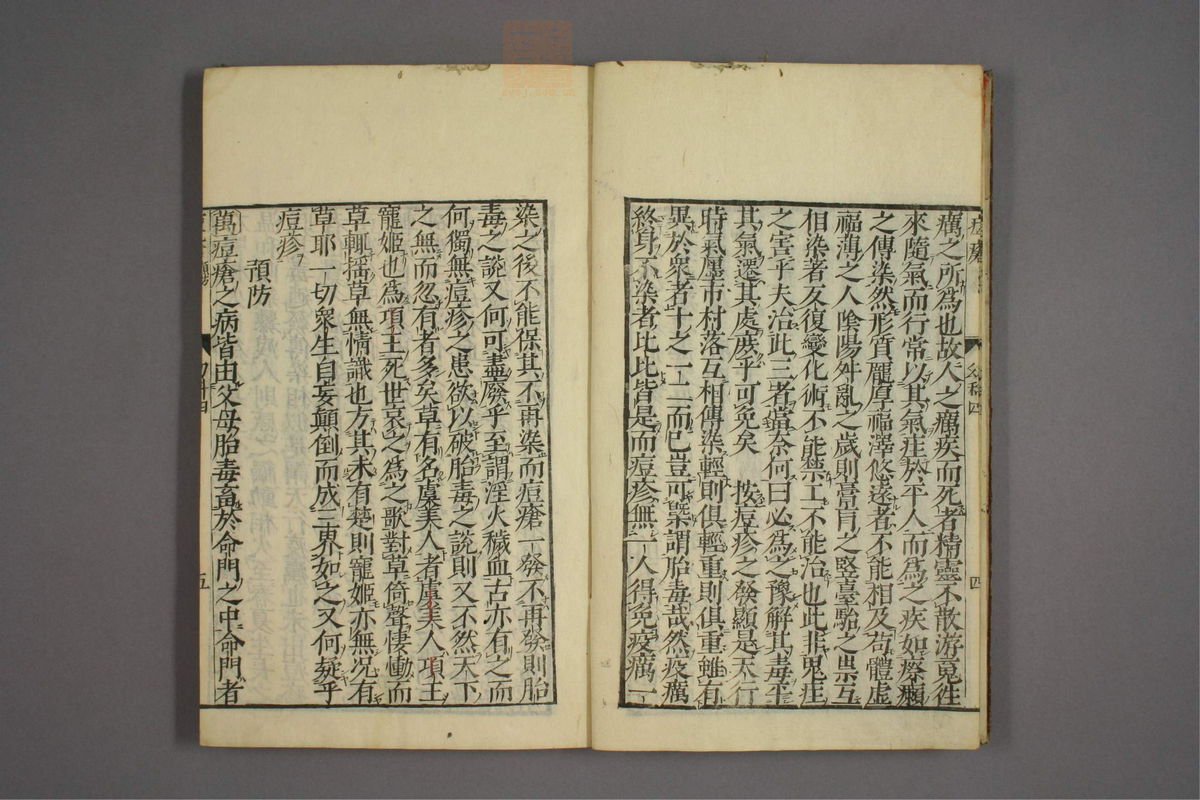 癘之所爲也故人之癘疾而死者精靈不散游䰟徃
來隨氣而行常以其氣疰於平人而爲之疾如瘵癩
之傳染然形質龎厚福澤悠遠者不能相及苟體虚
福薄之人陰陽舛亂之歲則膏肓之竪臺駘之祟互
相染著反復變化術不能禁工不能治也此非鬼疰
之害乎夫治此三者當奈何曰必爲之豫解其毒平
其氣遷其處庻乎可免矣 按痘疹之發顯是天行
時氣廛市村落互相傳染輕則俱輕重則俱重雖有
異於衆者十之一二而已豈可槩謂胎毒哉然疫癘
終身不染者比比皆是而痘疹無一人得免疫癘一
四
染之後不能保其不再染而痘瘡一發不再發則胎
毒之説又何可盡廢乎至謂淫火穢血古亦有之而
何獨無痘疹之患欲以破胎毒之説則又不然天下
之無而忽有者多矣草有名虞美人者虞美人項王
寵姬也爲項王死世哀之爲之歌對草倚聲悽慟而
草輒揺草無情識也方其未有楚則寵姬亦無况有
草耶一切衆生自妄顛倒而成三界如之又何疑乎
痘疹
預防
萬痘瘡之病皆由父母胎毒畜於命門之中命門者
五